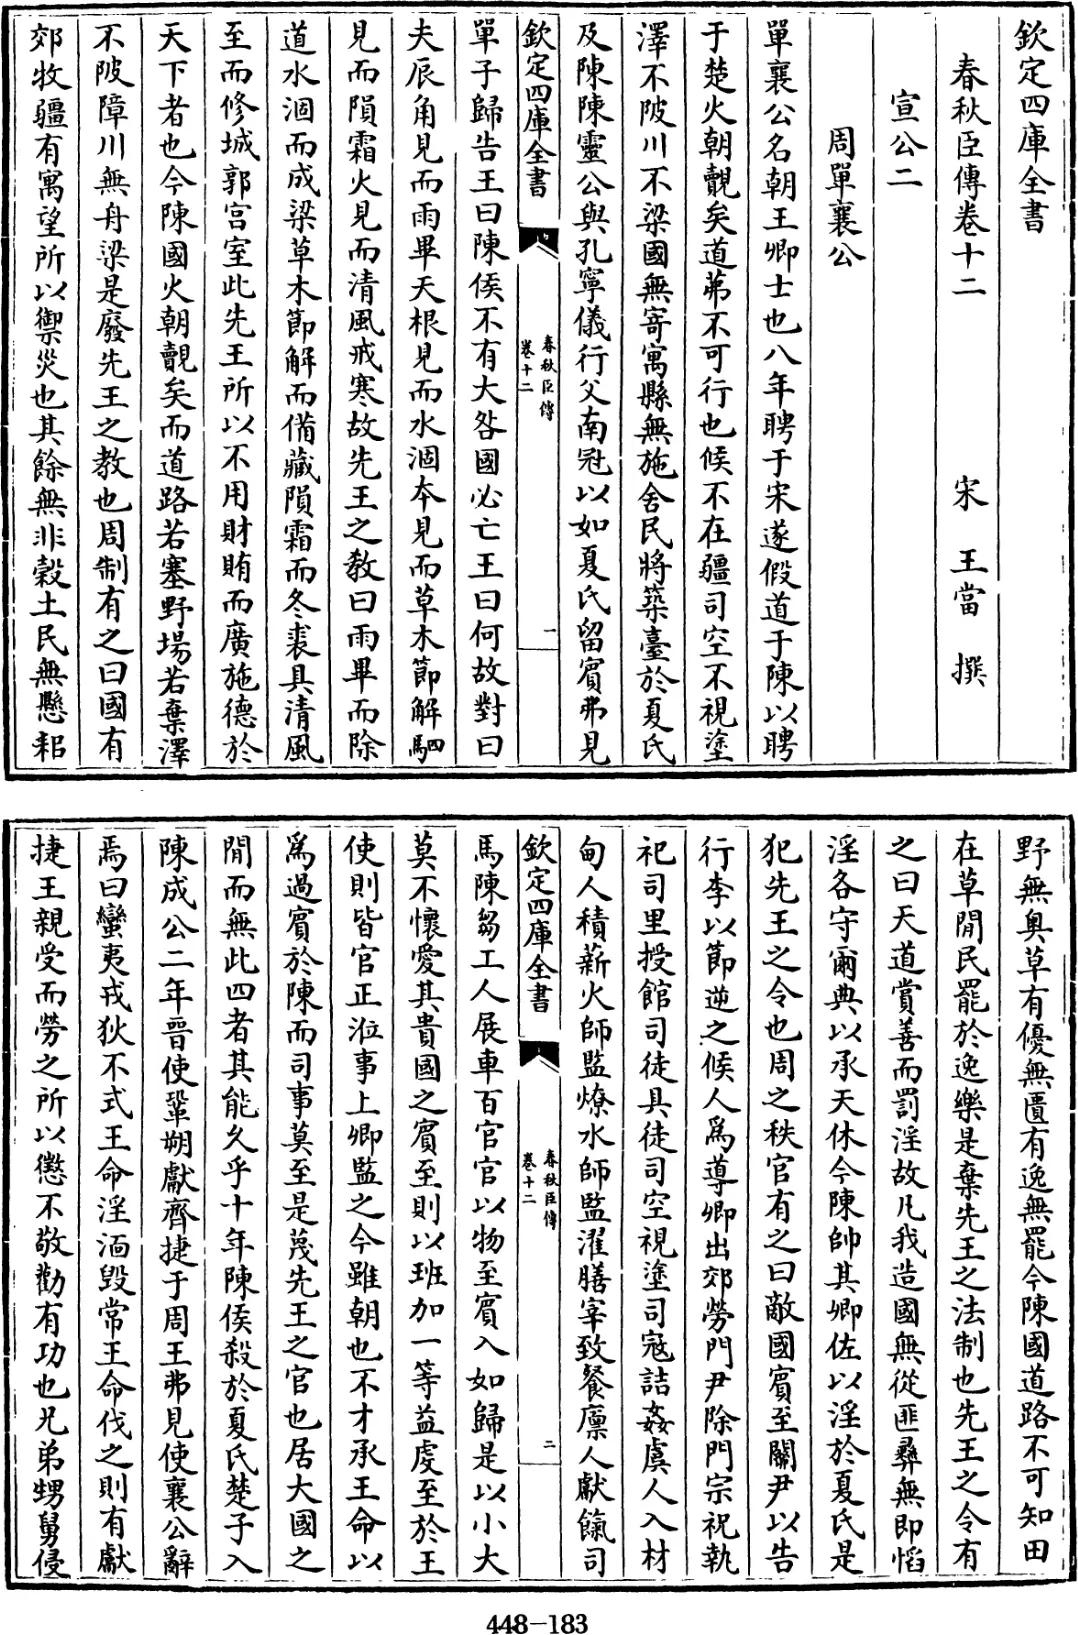 欽定四庫全書
春秋臣傳卷十二
宋 王當 撰
宣公二
周單襄公
單襄公名朝王卿士也八年聘于宋遂假道于陳以聘
于楚火朝覿矣道茀不可行也候不在疆司空不視塗
澤不陂川不梁國無寄寓縣無施舍民將築臺於夏氏
及陳陳靈公與孔寧儀行父南冠以如夏氏留賓弗見
欽定四庫全書
春秋臣傳
卷十二
一
單子歸告王曰陳侯不有大咎國必亡王曰何故對曰
夫辰角見而雨畢天根見而水涸本見而草木節解駟
見而隕霜火見而清風戒寒故先王之教曰雨畢而除
道水涸而成梁草木節解而備藏隕霜而冬裘具清風
至而修城郭宮室此先王所以不用財賄而廣施德於
天下者也今陳國火朝覿矣而道路若塞野場若棄澤
不陂障川無舟梁是廢先王之教也周制有之曰國有
郊牧疆有寓望所以禦災也其餘無非穀土民無懸耜
野無奥草有優無匱有逸無罷今陳國道路不可知田
在草間民罷於逸樂是棄先王之法制也先王之令有
之曰天道賞善而罰淫故凡我造國無從匪彝無即慆
淫各守爾典以承天休今陳帥其卿佐以淫於夏氏是
犯先王之令也周之秩官有之曰敵國賓至關尹以告
行李以節逆之候人為導卿出郊勞門尹除門宗祝執
祀司里授館司徒具徒司空視塗司寇詰姦虞人入材
甸人積薪火師監燎水師監濯膳宰致餐廩人獻餼司
欽定四庫全書
春秋臣傳
卷十二
二
馬陳芻工人展車百官官以物至賓入如歸是以小大
莫不懷愛其貴國之賓至則以班加一等益虔至於王
使則皆官正涖事上卿監之今雖朝也不才承王命以
為過賓於陳而司事莫至是蔑先王之官也居大國之
間而無此四者其能久乎十年陳侯殺於夏氏楚子入
陳成公二年晉使鞏朔獻齊捷于周王弗見使襄公辭
焉曰蠻夷戎狄不式王命淫湎毀常王命伐之則有獻
捷王親受而勞之所以懲不敬勸有功也兄弟甥舅侵
448-183